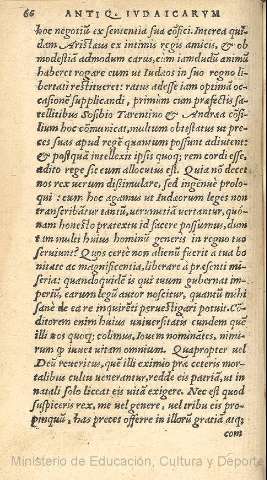 66 ANTIQ. IVDAICARVM
hoc negotiũ ex sententia sua cõfici. Interea qui-
dam Aristæus ex intimis regis amicis, & ob
modestiã admodum carus, cum iamdudũ animũ
haberet rogare eum ut Iudæos in suo regno li-
bertati restitueret: ratus adesse iam optimã oc-
casionẽ supplicandi, primùm cum præfectis sa-
tellitibus Sosibio Tarentino & Andrea cõsi-
lium hoc cõmunicat, multum obtestatus ut pre-
ces suas apud regẽ quantum possunt adiutent:
& postquã intellexit ipsis quoq; rem cordi esse,
adito rege sic eum allocutus est. Quia nõ decet
nos rex uerum dissimulare, sed ingenuè prolo-
qui: cum hoc agamus ut Iudæorum leges non
transcribãtur tantũ, uerumetiã uertantur, quo-
nam honesto prætextu id facere possumus, dum
tam multi huius hominũ generis in regno tuo
seruiunt? Quos certè non alienũ fuerit a tua bo
nitate ac magnificentia, liberare à præsenti mi-
seria: quandoquidẽ is qui tuum gubernat im-
perium, earum legũ autor noscitur, quantũ mihi
sanè de ea re inquirẽti peruestigari potuit. Cõ-
ditorem enim huius uniuersitatis eundem quẽ
illi nos quoq; colimus, Iouem nominãtes, nimi-
rum q iuuet uitam omnium. Quapropter uel
Dei ueneritus, quẽ illi eximio præ cæteris mor-
talibus cultu uenerantur, redde eis patriã, ut in
natali solo liceat eis uitã exigere. Nec est quod
suspiceris rex, me uel genere, uel tribu eis pro-
pinquũ, has preces offerre in illorũ gratiã atq;
com
Ministerio de Educación, Cultura y Deporte